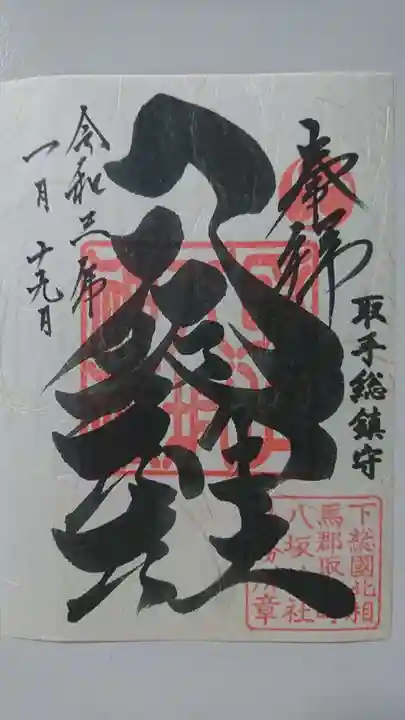 奉拝
取手総鎮守
八坂神社
令和三年
一月十九日
下総國北相
馬郡取
八坂 社
章